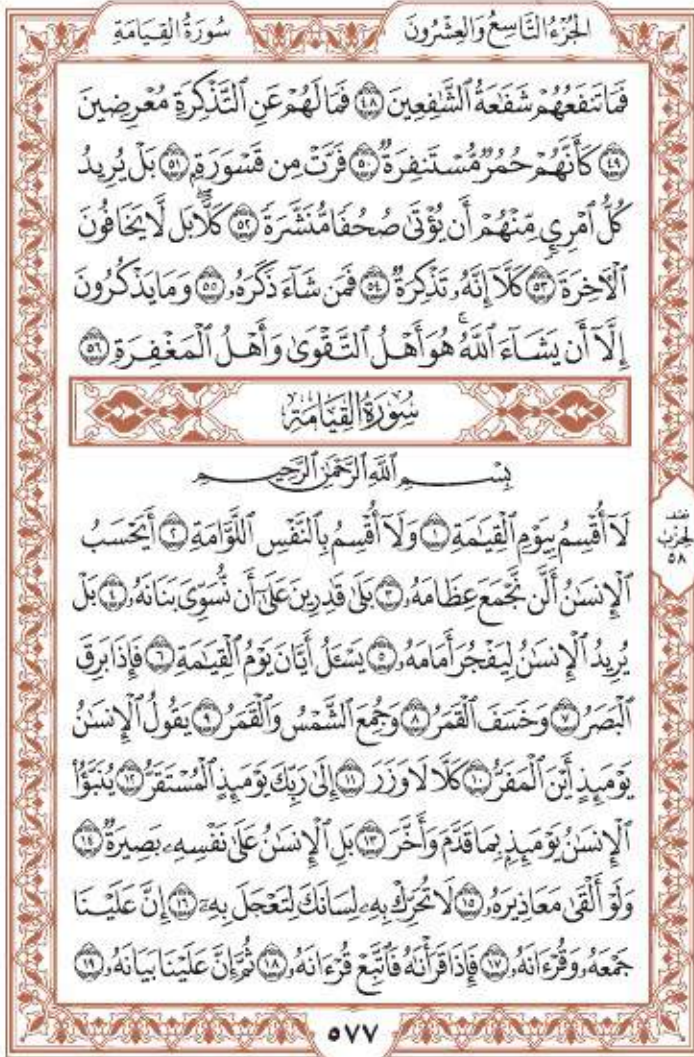 سُورَةُ القِيَامَةِ الجُزْءُ التَّاسِعُ وَالعِشْرُونَ
فَمَا تَنفَعُهُمْ شَفَٰعَةُ ٱلشَّٰفِعِينَ ٤٨ فَمَا لَهُمْ عَنِ ٱلتَّذْكِرَةِ مُعْرِضِينَ
٤٩ كَأَنَّهُمْ حُمُرٌ مُّسْتَنفِرَةٌ ٥٠ فَرَّتْ مِن قَسْوَرَةٍ ٥١ بَلْ يُرِيدُ
كُلُّ ٱمْرِئٍ مِّنْهُمْ أَن يُؤْتَىٰ صُحُفًا مُّنَشَّرَةً ٥٢ كَلَّا ۖ بَل لَّا يَخَافُونَ
ٱلْـَٔاخِرَةَ ٥٣ كَلَّآ إِنَّهُۥ تَذْكِرَةٌ ٥٤ فَمَن شَآءَ ذَكَرَهُۥ ٥٥ وَمَا يَذْكُرُونَ
إِلَّآ أَن يَشَآءَ ٱللَّهُ ۚ هُوَ أَهْلُ ٱلتَّقْوَىٰ وَأَهْلُ ٱلْمَغْفِرَةِ ٥٦
سُورَةُ القِيَامَةِ
بِسْمِ ٱللَّهِ ٱلرَّحْمَٰنِ ٱلرَّحِيمِ
لَآ أُقْسِمُ بِيَوْمِ ٱلْقِيَٰمَةِ ١ وَلَآ أُقْسِمُ بِٱلنَّفْسِ ٱللَّوَّامَةِ ٢ أَيَحْسَبُ
ٱلْإِنسَٰنُ أَلَّن نَّجْمَعَ عِظَامَهُۥ ٣ بَلَىٰ قَٰدِرِينَ عَلَىٰٓ أَن نُّسَوِّىَ بَنَانَهُۥ ٤ بَلْ
يُرِيدُ ٱلْإِنسَٰنُ لِيَفْجُرَ أَمَامَهُۥ ٥ يَسْـَٔلُ أَيَّانَ يَوْمُ ٱلْقِيَٰمَةِ ٦ فَإِذَا بَرِقَ
ٱلْبَصَرُ ٧ وَخَسَفَ ٱلْقَمَرُ ٨ وَجُمِعَ ٱلشَّمْسُ وَٱلْقَمَرُ ٩ يَقُولُ ٱلْإِنسَٰنُ
يَوْمَئِذٍ أَيْنَ ٱلْمَفَرُّ ١٠ كَلَّا لَا وَزَرَ ١١ إِلَىٰ رَبِّكَ يَوْمَئِذٍ ٱلْمُسْتَقَرُّ ١٢ يُنَبَّؤُا۟
ٱلْإِنسَٰنُ يَوْمَئِذٍۭ بِمَا قَدَّمَ وَأَخَّرَ ١٣ بَلِ ٱلْإِنسَٰنُ عَلَىٰ نَفْسِهِۦ بَصِيرَةٌ ١٤
وَلَوْ أَلْقَىٰ مَعَاذِيرَهُۥ ١٥ لَا تُحَرِّكْ بِهِۦ لِسَانَكَ لِتَعْجَلَ بِهِۦٓ ١٦ إِنَّ عَلَيْنَا
جَمْعَهُۥ وَقُرْءَانَهُۥ ١٧ فَإِذَا قَرَأْنَٰهُ فَٱتَّبِعْ قُرْءَانَهُۥ ١٨ ثُمَّ إِنَّ عَلَيْنَا بَيَانَهُۥ ١٩
نصف
الحزب
٥٨
٥٧٧